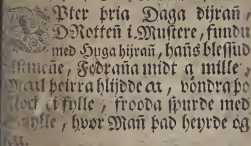 Epter þria Daga dijrañ
Drotteñ i Mustere, fundu
med Huga hijrañ, hañs blessud
Fedraña midt a mille,
þeirra hlijdde ar, vondra þo
flock i fylle, frooda spurde med
hvor Mañ þad heyrde og